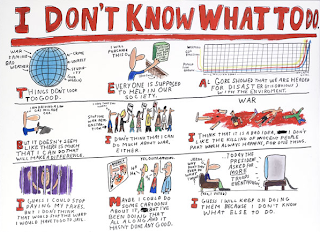 I DON'T KNOW WHAT TO DO.
WAR
FAMINE
BAD
WEATHER
CRIME
GREED
STUPID-
ITY
THINGS DON'T LOOK
TOO GOOD.
I WILL
PURCHASE
THIS.
EVERYONE IS SUPPOSED
TO HELP IN OUR
SOCIETY.
AL GORE SHOWED THAT WE ARE HEADED
FOR DISASTER
WITH THE ENVIROMENT.
BUT IT DOESN'T SEEM
LIKE THERE IS MUCH
THAT I CAN DO THAT
WILL MAKE A DIFFERENCE.
I DON'T THINK THAT I CAN
DO MUCH ABOUT WAR,
EITHER.
WAR
I THINK THAT IT IS A BAD IDEA,
LIKE THE KILLING OF INNOCENT PEOPLE
PART WHICH ALWAYS HAPPENS, FOR ONE THING.
I GUESS I COULD STOP
PAYING MY TAXES,
BUT I DON'T THINK
THAT WOULD STOP THE WAR
I WOULD HAVE TO GO TO JAIL
MAYBE I COULD DO
SOME CARTOONS
ABOUT IT, BUT I'VE
BEEN DOING THAT
ALL ALONG AND IT
HASN'T DONE ANY GOOD.
TODAY THE
PRESIDENT
ASKED FOR
MORE
TROOPS
I GUESS I WILL KEEP ON DOING
THEM BECAUSE I DON'T
KNOW WHAT ELSE TO DO.